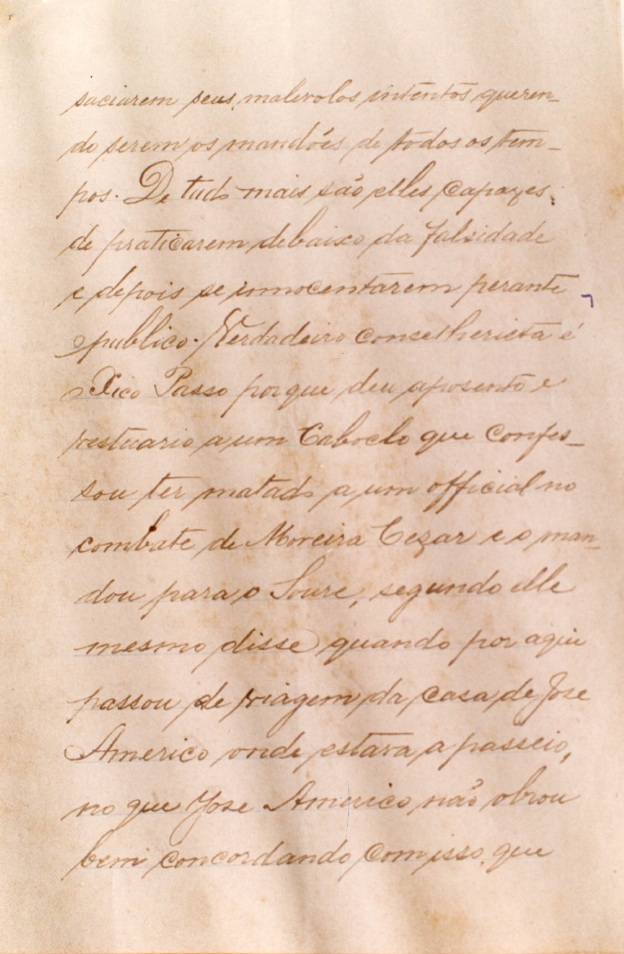 saciarem seus malevolos intentos queren-
do serem os mandões de todos os tem-
pos. De tudo mais são elles capazes
de praticarem debaixo da falsidade
e depois se innocentarem perante
o publico. Verdadeiro conselherista é
o Xico Passo porque deu aposento e
vestuario a um Caboclo que confes-
sou ter matado a um official no
combate de Moreira Cezar e o man-
dou para o Soure, segundo elle
mesmo disse quando por aqui
passou de viagem da casa de Jose
Americo onde estava a passeio,
no que Jose Americo não obrou
bem concordando com isso, que